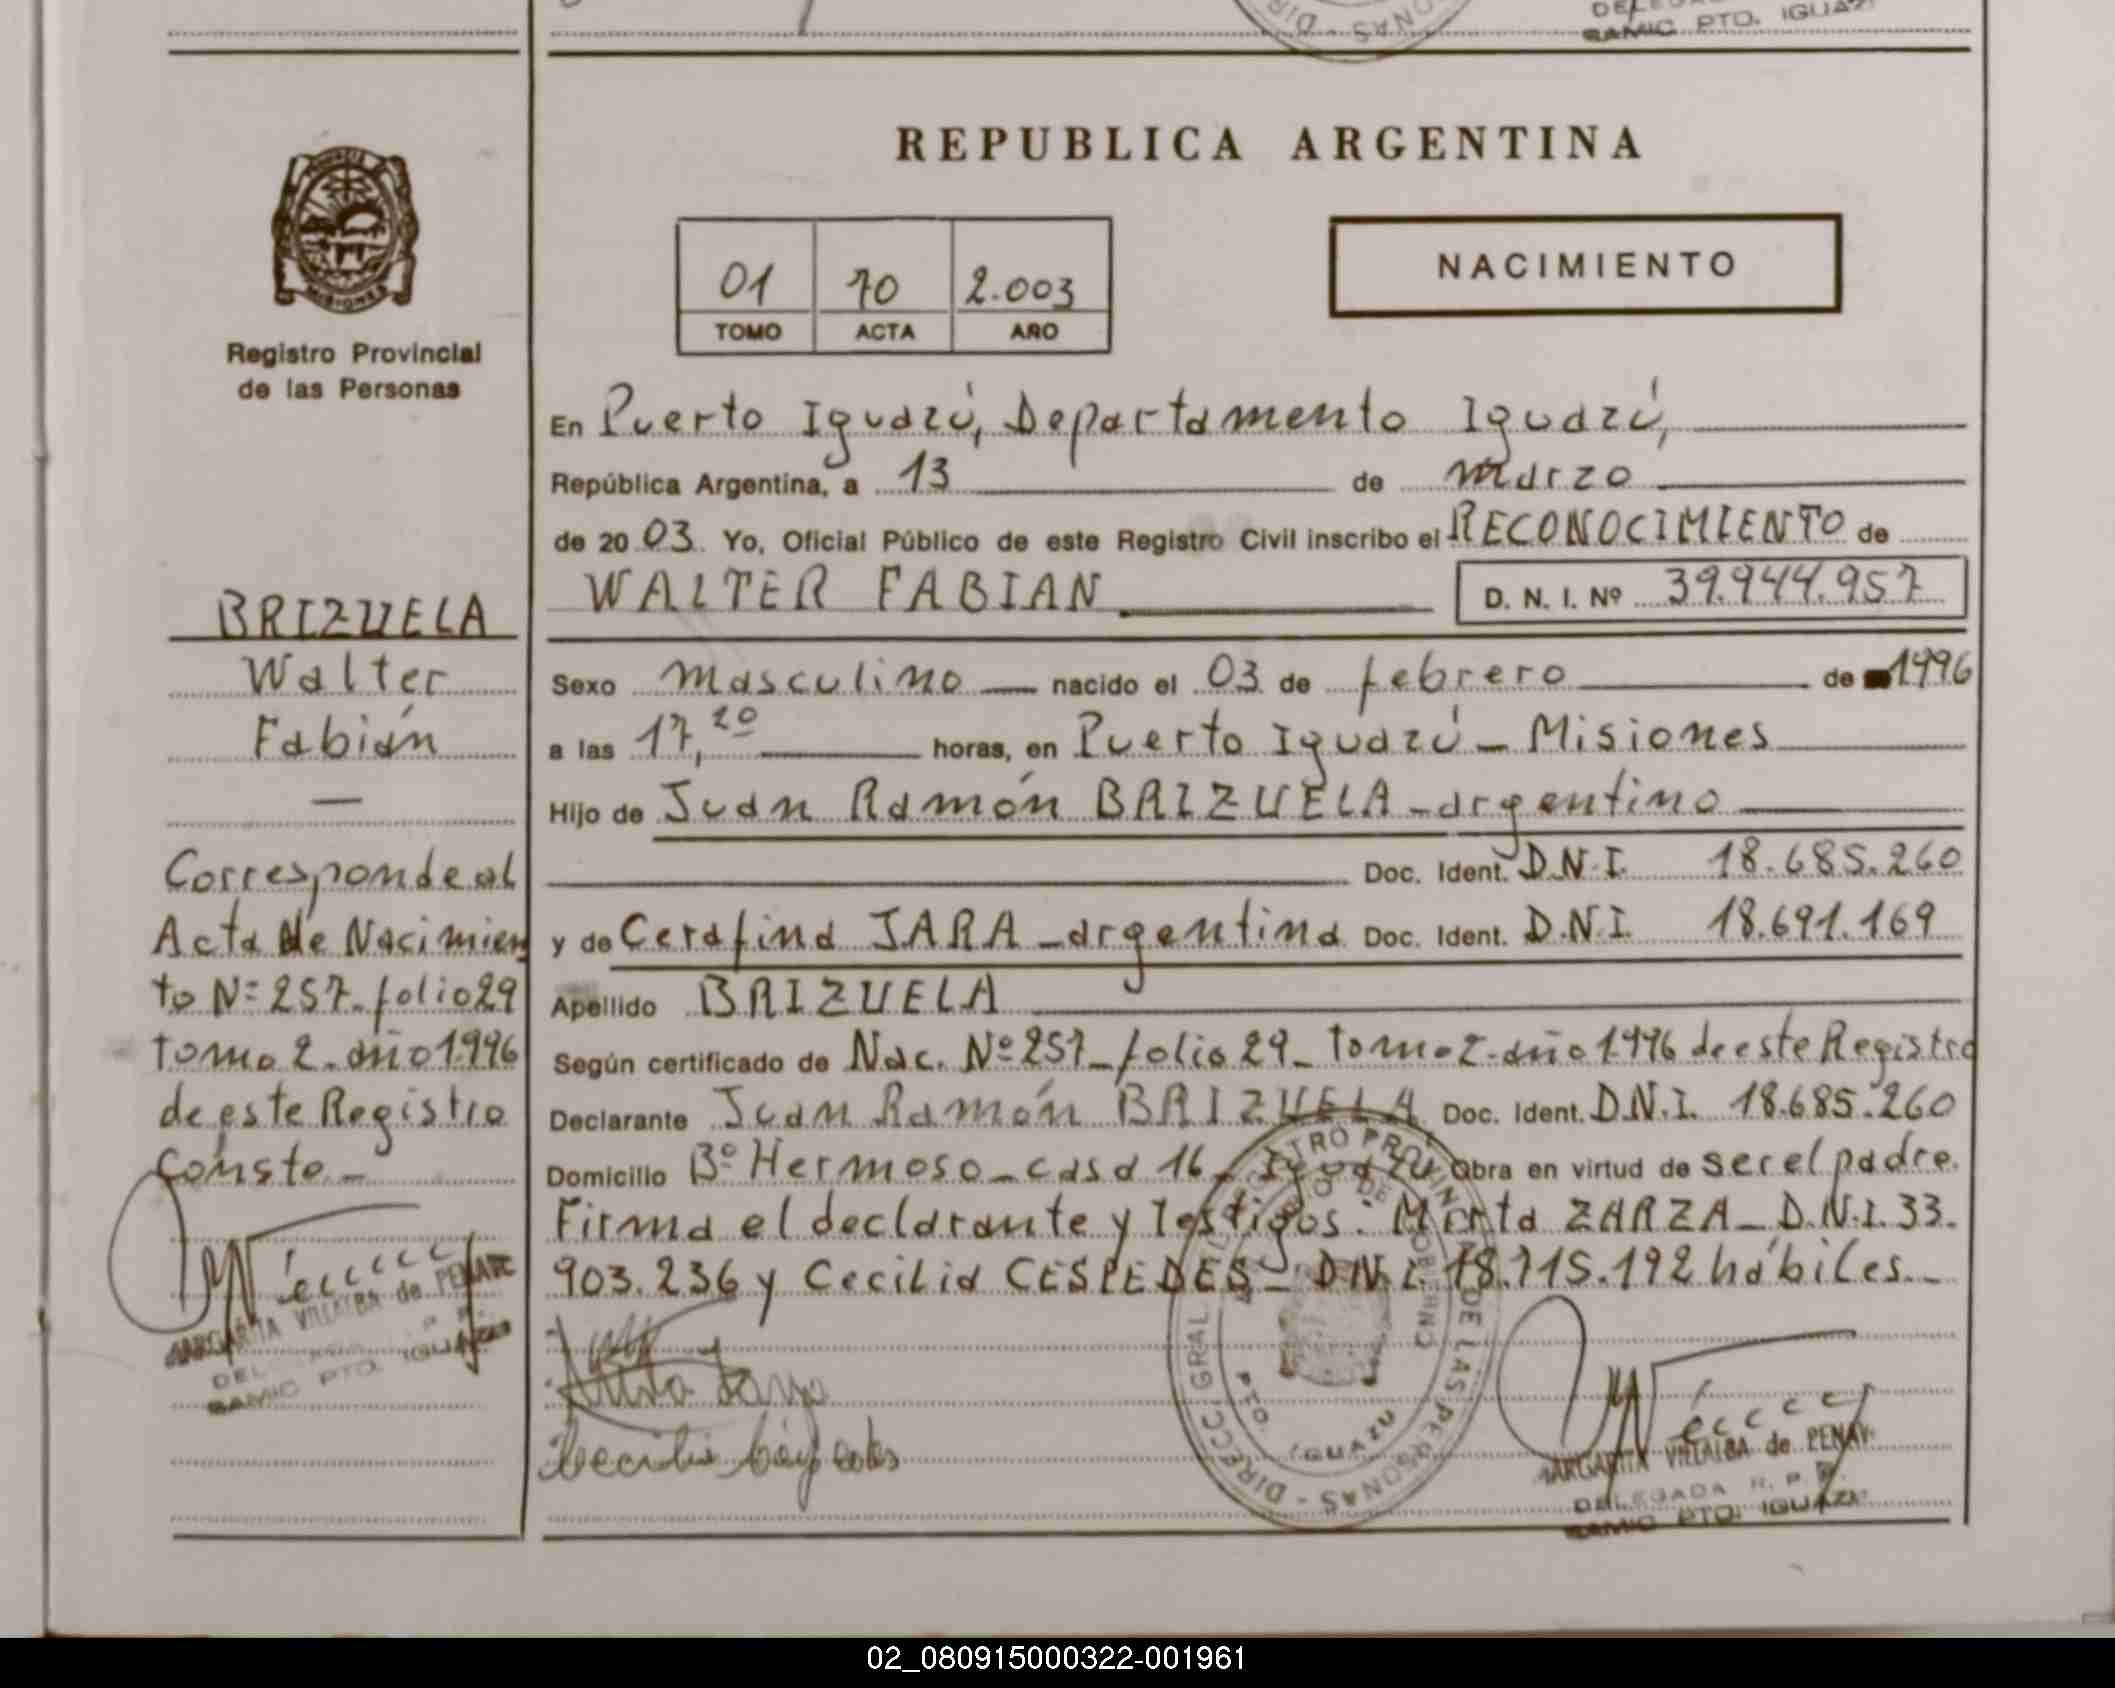 REPUBLICA ARGENTINA
NACIMIENTO
01 70 2.003
TOMO ACTA AÑO
Registro Provincial
de las Personas
En Puerto Iguazú, Departamento Iguazú,
República Argentina, a 13 de marzo
de 20 03 Yo, Oficial Público de este Registro Civil inscribo el RECONOCIMIENTO de
WALTER FABIAN D. N. I. Nº 39.944.957
Sexo masculino nacido el 03 de febrero de 1996
a las 17,20 horas, en Puerto Iguazú - Misiones
Hijo de Juan Ramón BRIZUELA - argentino
Doc. Ident. D.N.I. 18.685.260
y de Cerafina JARA - argentina Doc. Ident. D.N.I. 18.691.169
Apellido BRIZUELA
Según certificado de Nac. Nº 257 - folio 29 - Tomo 2 - año 1996 de este Registro
Declarante Juan Ramón BRIZUELA Doc. Ident. D.N.I. 18.685.260
Domicilio Bº Hermoso - casa 16 - Iguazú Obra en virtud de ser el padre.
Firma el declarante y Testigos: Mirta ZARZA - D.N.I. 33.
903.236 y Cecilia CESPEDES - D.N.I. 18.715.192 hábiles. -
BRIZUELA
Walter
Fabián
—
Corresponde al
Acta de Nacimien
to Nº 257 - folio 29
tomo 2 - año 1996
de este Registro
Conste. -
MARGARITA VILLALBA de
SAMIC PTO. IGUAZU
DIRECC. GRAL. REGISTRO PROVINCIAL DE LAS PERSONAS
PTO. IGUAZU
MARGARITA VILLALBA de
DELEGADA R. P. P.
SAMIC PTO. IGUAZU
SAMIC PTO. IGUAZU
02_080915000322-001961